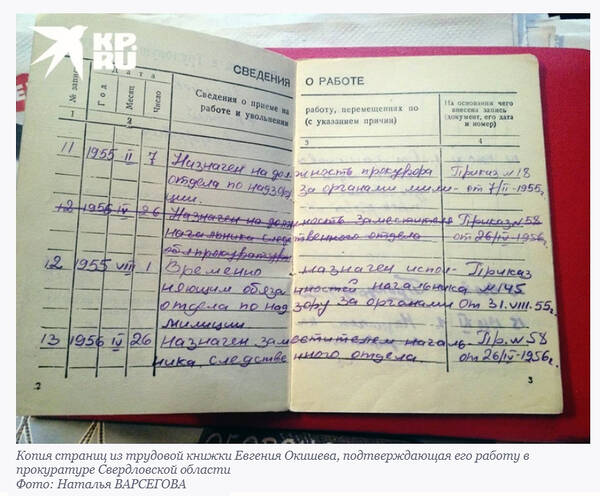 KP.RU
СВЕДЕНИЯ О РАБОТЕ
№ записи
Дата
Год
Месяц
Число
Сведения о приеме на работу, перемещениях по
работе и увольнении (с указанием причин)
На основании чего
внесена запись
(документ, его дата
и номер)
1 2 3 4
11 1955 II 7 Назначен на должность прокурора Приказ №18
отдела по надзору за органами мили- от 7/II-1955г.
ции.
12 1956 IV 26 Назначен на должность заместителя Приказ №58
начальника следственного отдела от 26/IV-1956г.
обл прокуратуры
12 1955 VIII 1 Временно назначен испол- Приказ
няющим обязанностей начальника №145
отдела по надзору за органами от 31.VIII.55г.
милиции
13 1956 IV 26 Назначен заместителем началь- Пр. №58
ника следственного отдела. от 26/IV-1956г.
2 3
Копия страниц из трудовой книжки Евгения Окишева, подтверждающая его работу в
прокуратуре Свердловской области
Фото: Наталья ВАРСЕГОВА